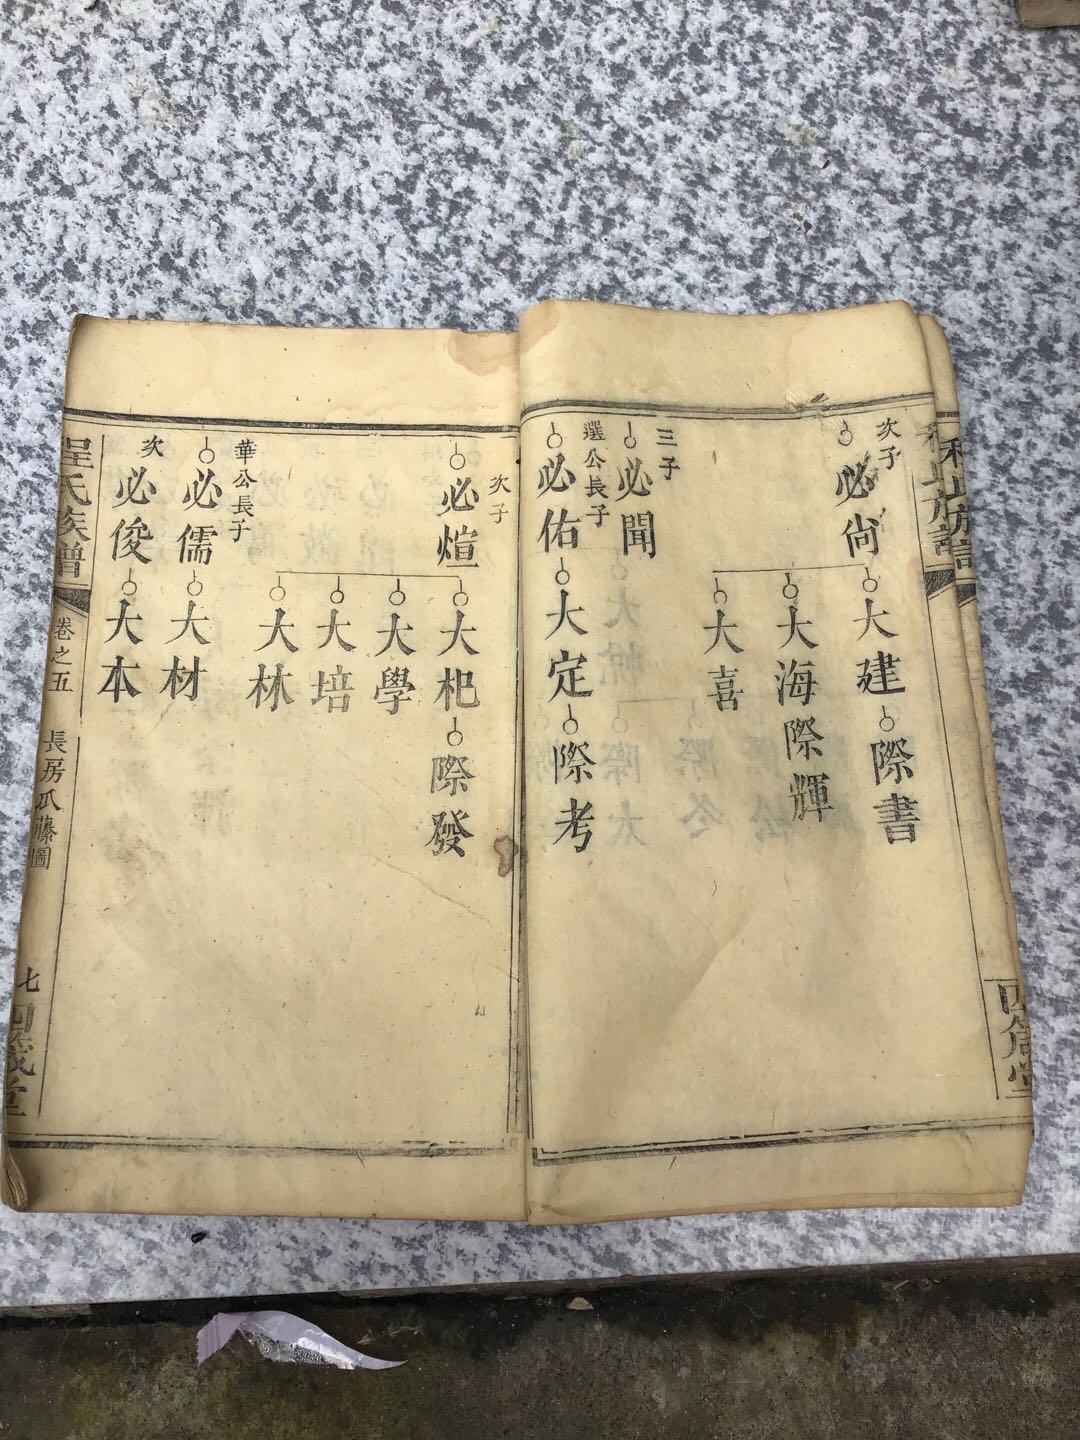 次子
必尚
大建
際書
大海
際輝
大喜
三子
必聞
選公長子
必佑
大定
際考
次子
必煊
大杷
際發
大學
大培
大林
華公長子
必儒
大材
次
必俊
大本
程氏族譜
卷之五
長房瓜藤圖
七
四箴堂
四箴堂